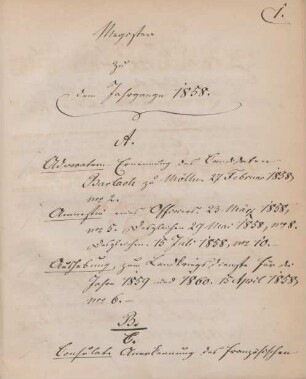 1.
Register
zu
dem Jahrgange 1858.
A.
Advocaten Ernennung des Candidaten
Barlach zu Mölln 27 Februar 1858,
no 2.
Amnestie eines Officiers 23 März 1858,
no 5. Desgleichen 29 Mai 1858, no 8.
Desgleichen 15 Juli 1858, no 10.
Aushebung zum Landkriegsdienste für die
Jahre 1859 und 1860. 15 April 1858,
no 6.
B.
C.
Consulats Anerkennung des französischen